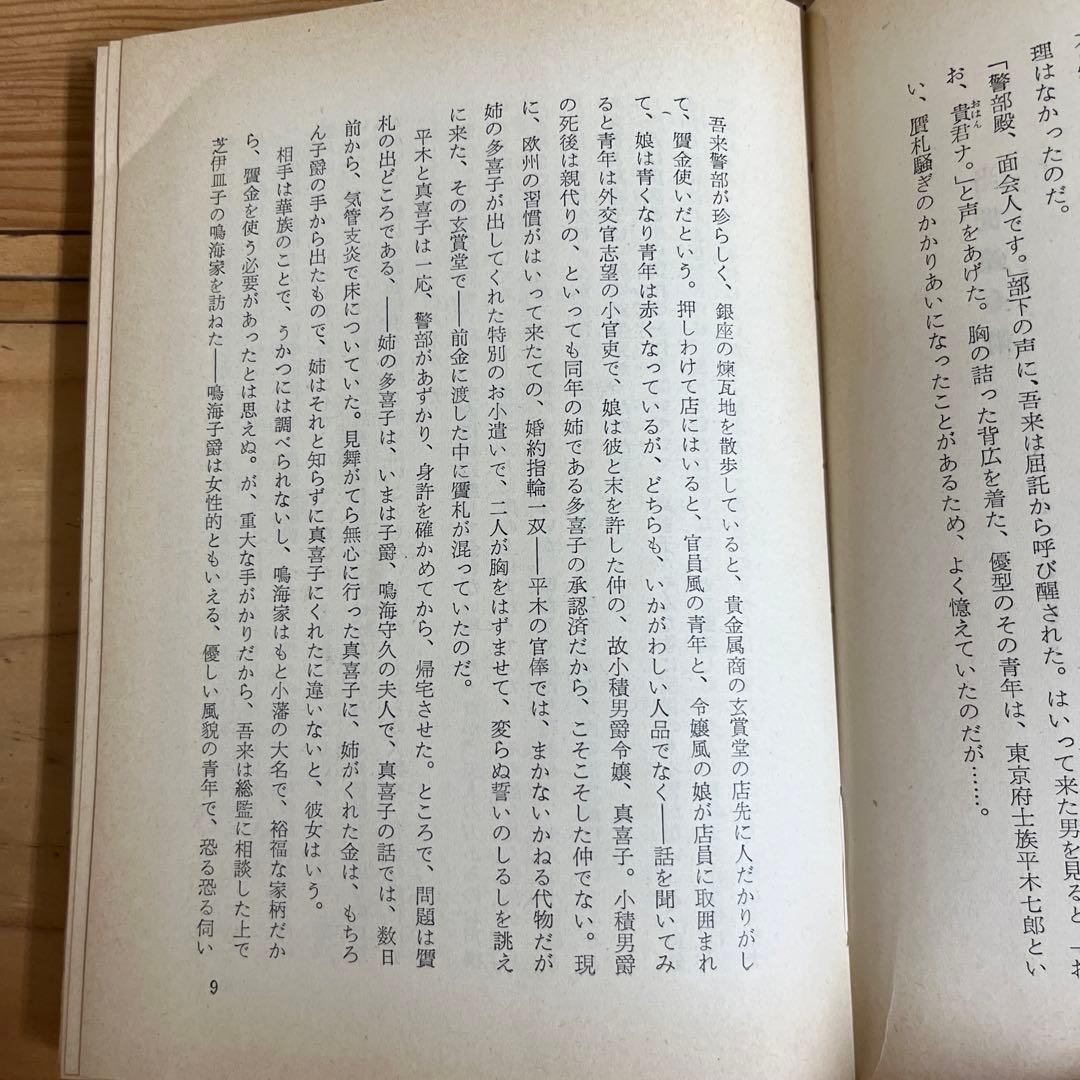 理はなかったのだ。
「警部殿、面会人です。」部下の声に、吾来は屈託から呼び醒された。はいって来た男を見ると「お
お、貴君ナ。」と声をあげた。胸の詰った背広を着た、優型のその青年は、東京府士族平木七郎とい
おはん
い、贋札騒ぎのかかりあいになったことがあるため、よく憶えていたのだが……。
吾来警部が珍らしく、銀座の煉瓦地を散歩していると、貴金属商の玄賞堂の店先に人だかりがし
て、贋金使いだという。押しわけて店にはいると、官員風の青年と、令嬢風の娘が店員に取囲まれ
て、娘は青くなり青年は赤くなっているが、どちらも、いかがわしい人品でなく――話を聞いてみ
ると青年は外交官志望の小官吏で、娘は彼と末を許した仲の、故小積男爵令嬢、真喜子。小積男爵
の死後は親代りの、といっても同年の姉である多喜子の承認済だから、こそこそした仲でない。現
に、欧州の習慣がはいって来たての、婚約指輪一双――平木の官俸では、まかないかねる代物だが
姉の多喜子が出してくれた特別のお小遣いで、二人が胸をはずませて、変らぬ誓いのしるしを誂え
に来た、その玄賞堂で――前金に渡した中に贋札が混っていたのだ。
平木と真喜子は一応、警部があずかり、身許を確かめてから、帰宅させた。ところで、問題は贋
札の出どころである、――姉の多喜子は、いまは子爵、鳴海守久の夫人で、真喜子の話では、数日
前から、気管支炎で床についていた。見舞がてら無心に行った真喜子に、姉がくれた金は、もちろ
ん子爵の手から出たもので、姉はそれと知らずに真喜子にくれたに違いないと、彼女はいう。
相手は華族のことで、うかつには調べられないし、鳴海家はもと小藩の大名で、裕福な家柄だか
ら、贋金を使う必要があったとは思えぬ。が、重大な手がかりだから、吾来は総監に相談した上で
芝伊皿子の鳴海家を訪ねた――鳴海子爵は女性的ともいえる、優しい風貌の青年で、恐る恐る伺い
9